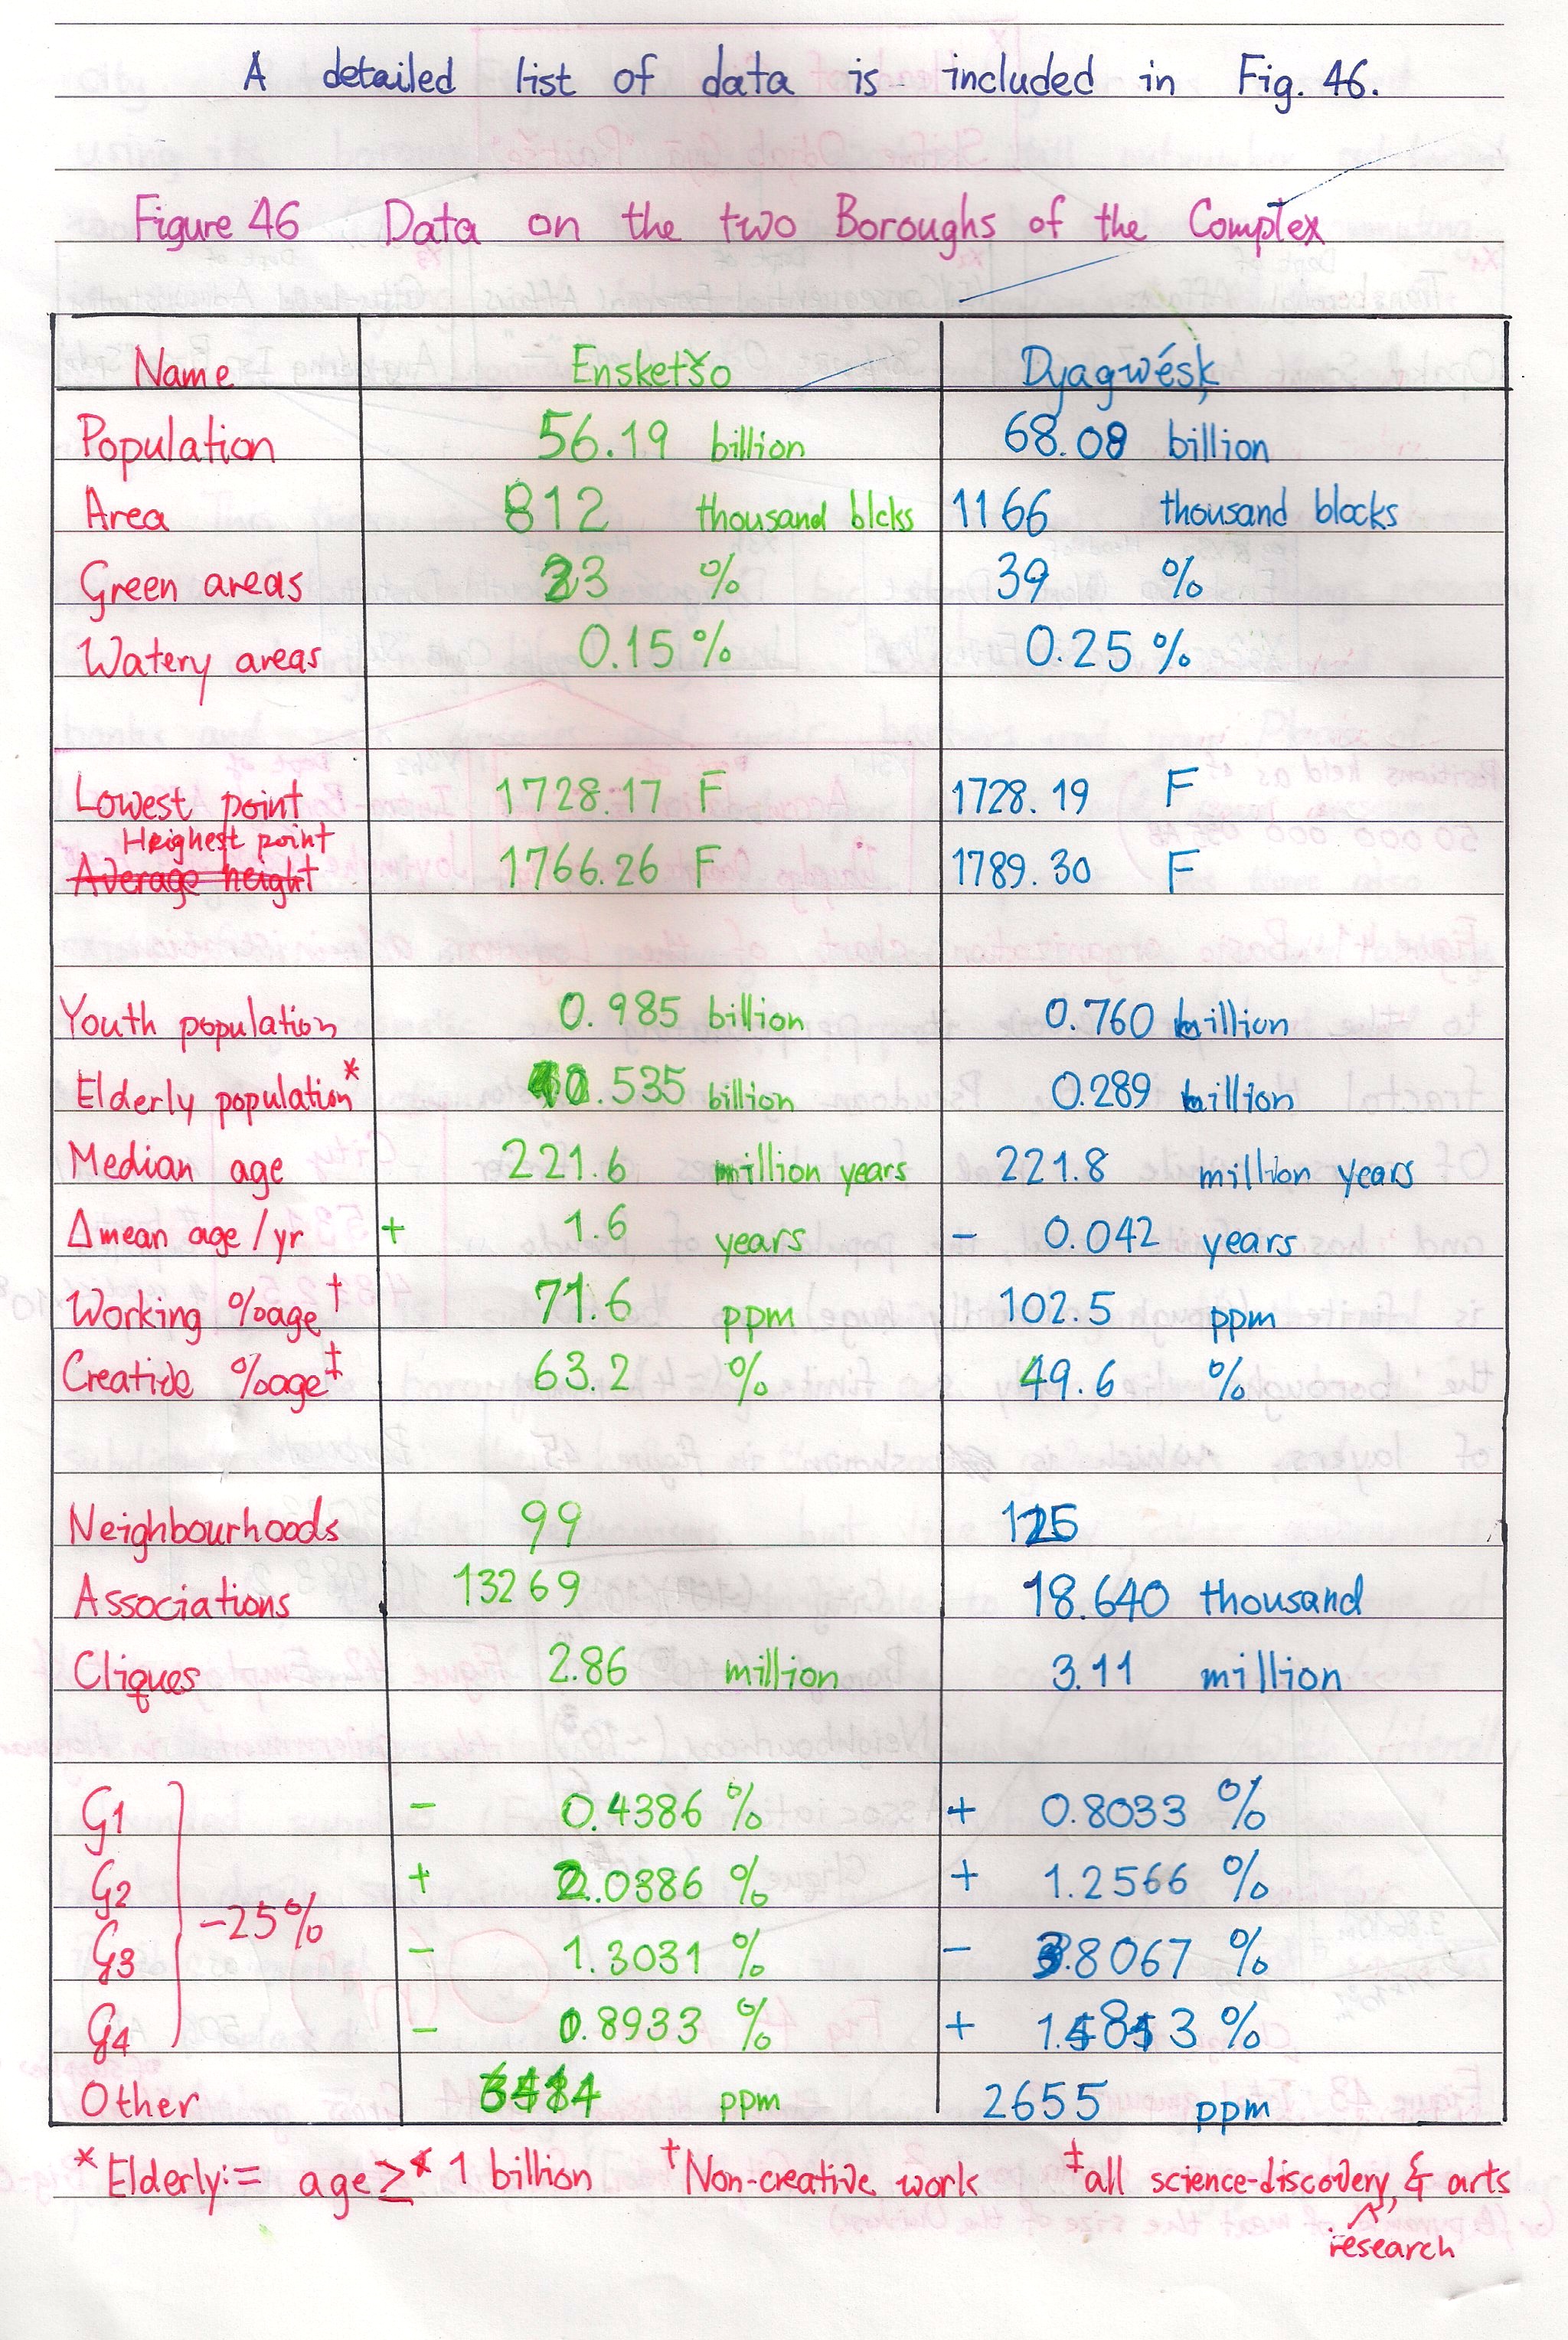 A detailed list of data is included in Fig. 46.
Figure 46 Data on the two Boroughs of the Complex
Name Ensketšo Dyagwésķ
Population 56.19 billion 68.08 billion
Area 812 thousand blcks 1166 thousand blocks
Green areas 23 % 39 %
Watery areas 0.15 % 0.25 %
Lowest point 1728.17 F 1728.19 F
Heighest point
Average height 1766.26 F 1789.30 F
Youth population 0.985 billion 0.760 billion
Elderly population* .535 billion 0.289 billion
Median age 221.6 million years 221.8 million years
Δmean age/yr + 1.6 years - 0.042 years
Working %age† 71.6 ppm 102.5 ppm
Creative %age‡ 63.2 % 49.6 %
Neighbourhoods 99 125
Associations 13269 18.640 thousand
Cliques 2.86 million 3.11 million
G1 - 0.4386 % + 0.8033 %
G2 + 2.0386 % + 1.2566 %
-25%
G3 - 1.3031 % - 3.8067 %
G4 - 0.8933 % + %
Other ppm 2655 ppm
*Elderly:= age ≥ 1 billion †Non-creative work ‡all science-discovery, & arts
research